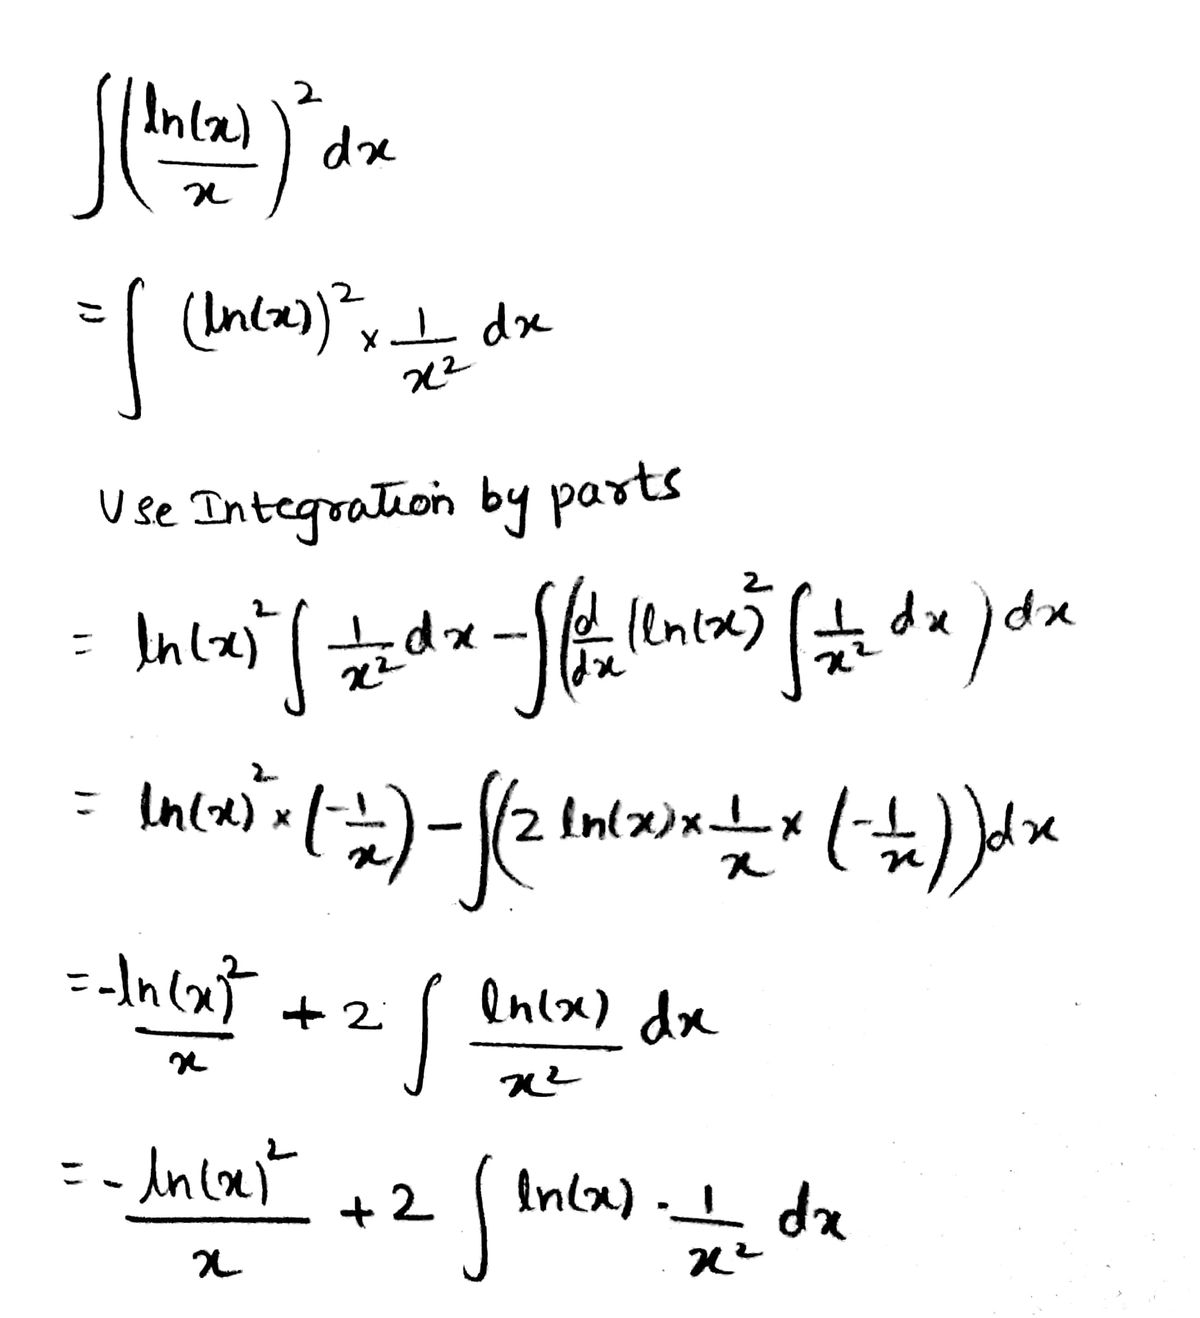 ∫(ln(x)/x)² dx
= ∫ (ln(x))² × 1/x² dx
Use Integration by parts
= ln(x)² ∫ 1/x² dx - ∫(d/dx (ln(x)² ∫ 1/x² dx) dx
= ln(x)² × (-1/x) - ∫(2 ln(x) × 1/x × (-1/x)) dx
= -ln(x)²/x + 2 ∫ ln(x)/x² dx
= - ln(x)²/x + 2 ∫ ln(x) · 1/x² dx